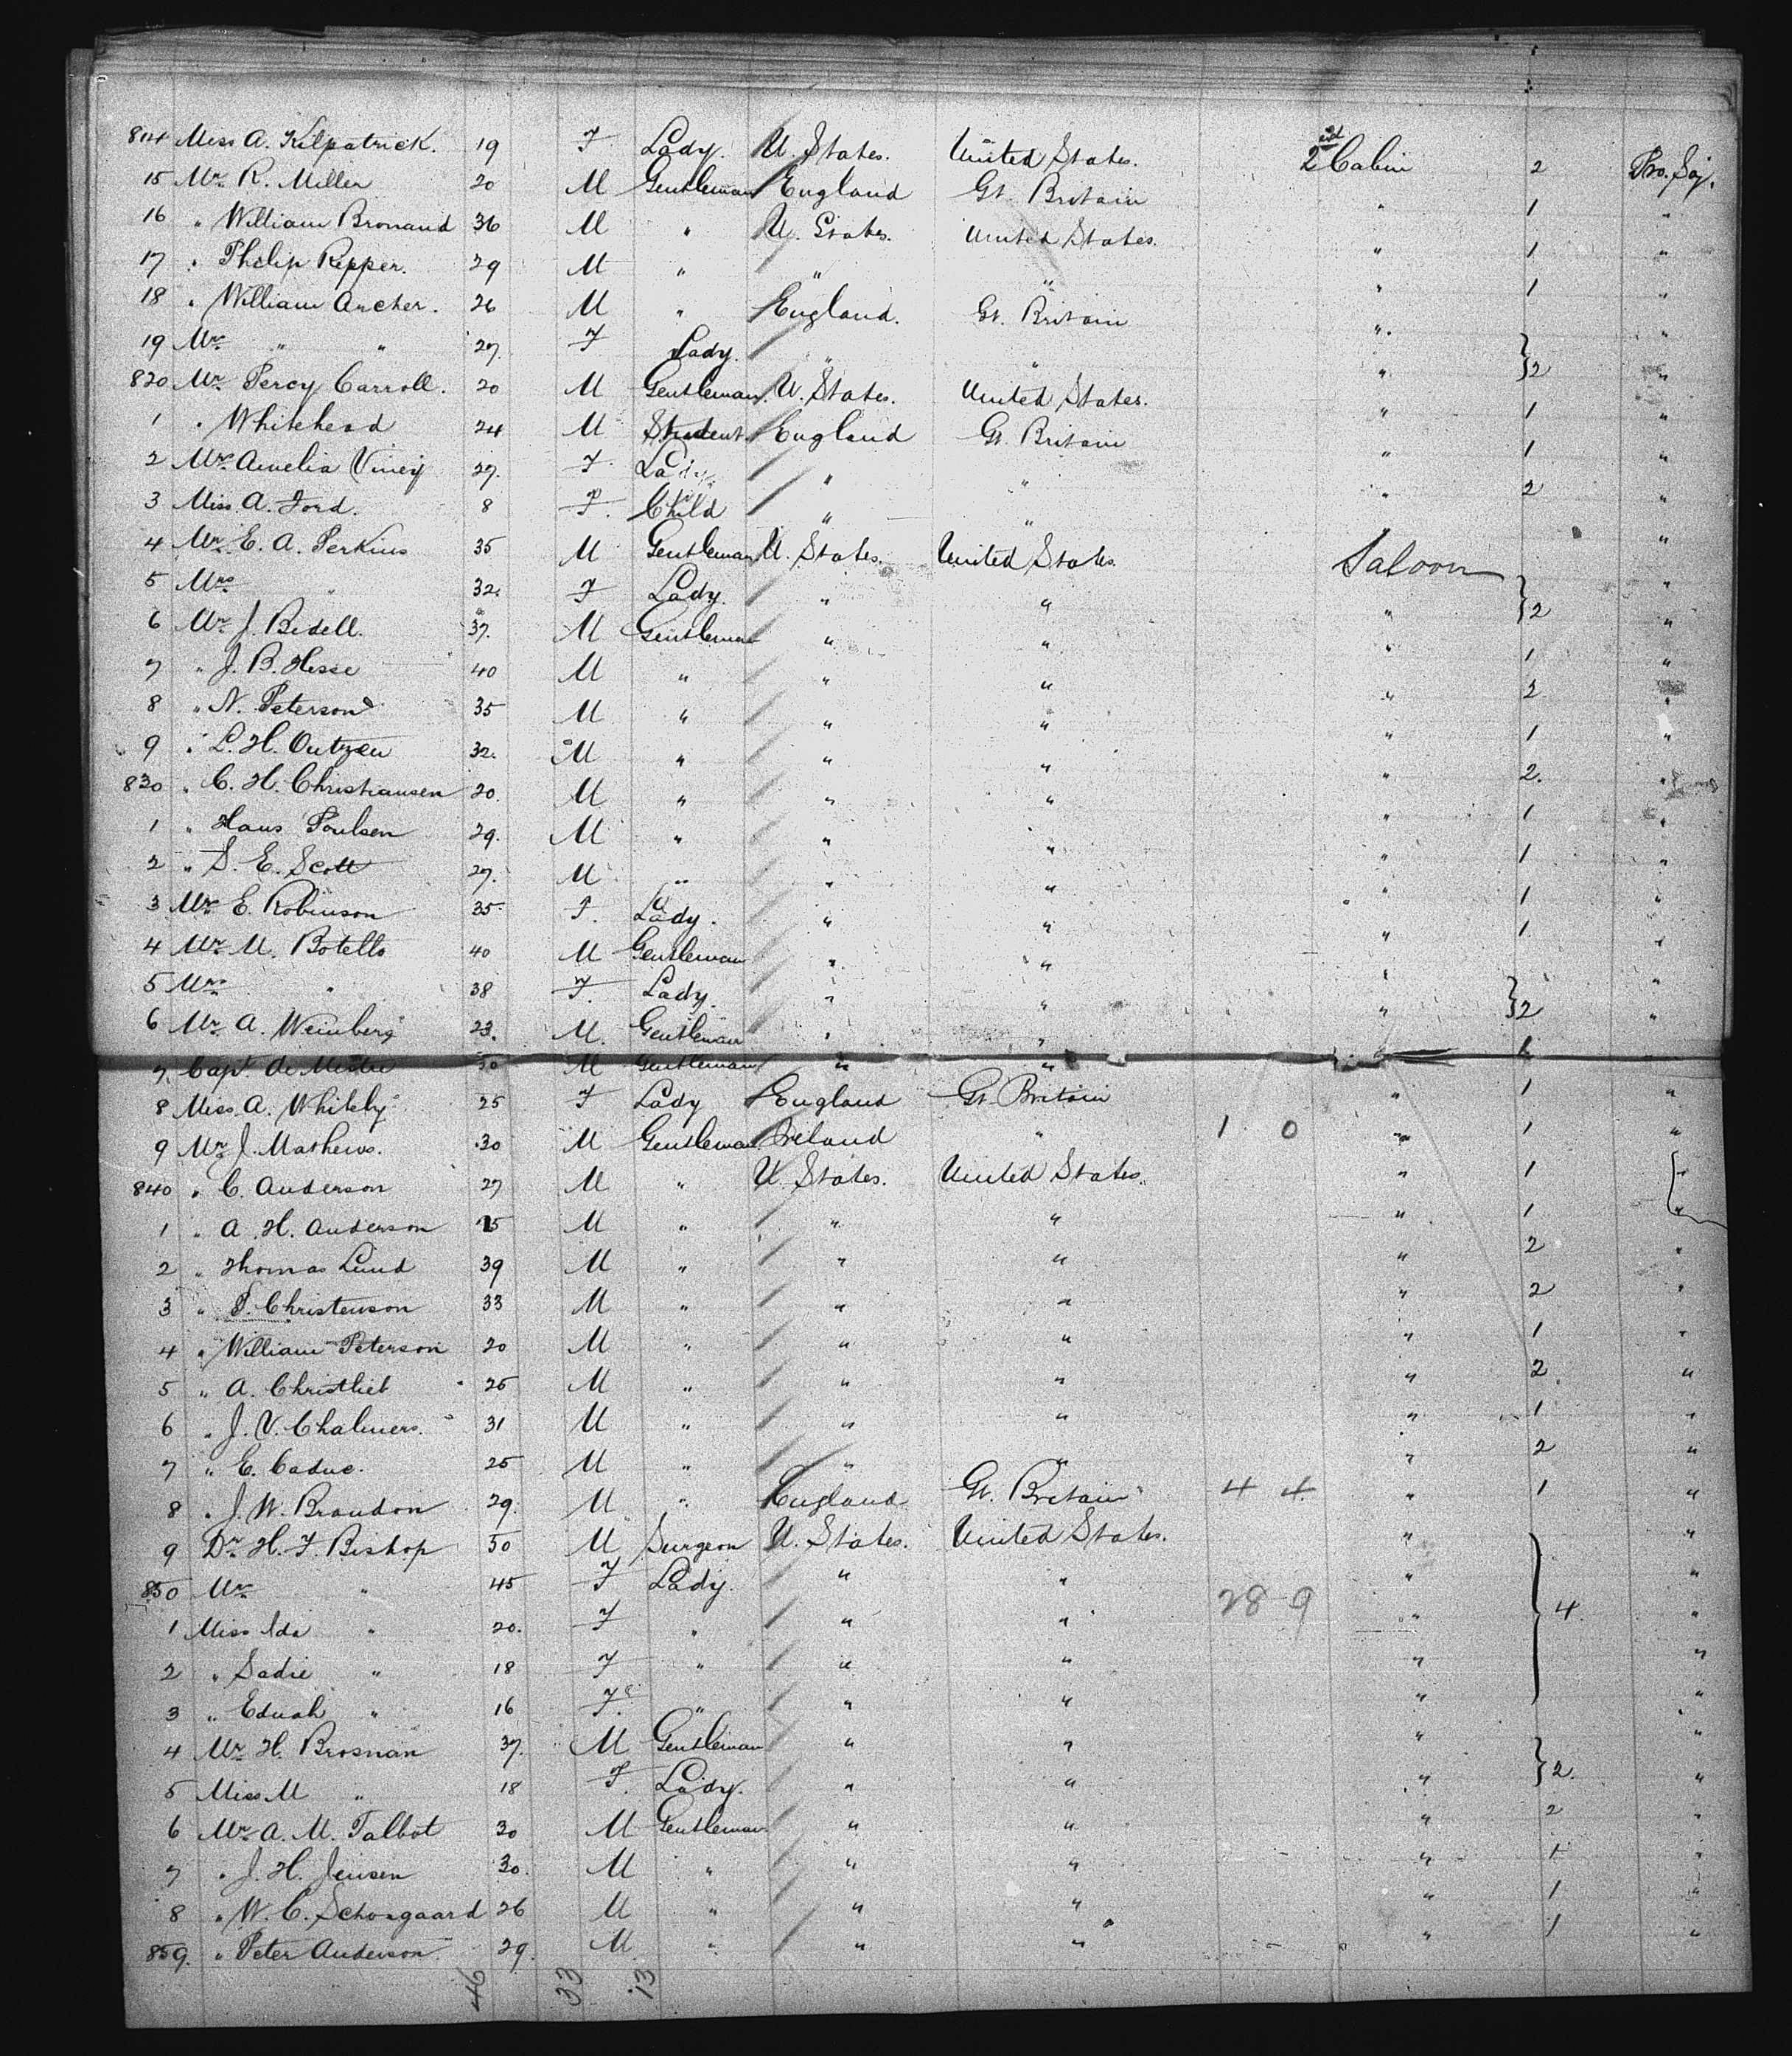 814 Miss A. Kilpatrick. 19 F Lady. U. States. United States. 2nd Cabin 2 Pro. Soj.
15 Mr. R. Miller 20 M Gentleman England Gt. Britain " 1 "
16 " William Bronaud 36 M " U. States. United States. " 1 "
17 " Philip Repper. 29 M " " " " 1 "
18 " William Archer. 26 M " England. Gt. Britain "
19 Mrs " " 27 F Lady. " " " } 2 "
820 Mr. Percy Carroll. 20 M Gentleman. U. States. United States. " 1 "
1 " Whitehead 24 M Student. England Gt. Britain " 1 "
2 Mrs Amelia Viney 27. F. Lady " " " 2 "
3 Miss A. Ford. 8 F. Child " " "
4 Mr. E. A. Perkins 35 M Gentleman U. States. United States. Saloon "
5 Mrs " 32. F Lady. " " " } 2 "
6 Mr. J. Bedell. 37. M Gentleman " " " 1 "
7 " J. B. Hesse 40 M " " " " 2 "
8 " N. Peterson 35 M " " " " 1 "
9 " L. H. Outzen 32. M " " " " 2. "
830 " C. H. Christiansen 20. M " " " " 1 "
1 " Hans Poulsen 29. M " " " " 1 "
2 " S. E. Scott 27. M " " " " 1 "
3 Mrs E. Robinson 35. F. Lady. " " " 1 "
4 Mr. M. Botello 40 M Gentleman " " " "
5 Mrs " 38 F. Lady. " " " } 2 "
6 Mr. A. Weinberg 23. M. Gentleman " " " 1
7. Capt. de 50 M Gentleman " " 1 "
8 Miss. A. Whitely 25 F Lady England Gt. Britain " 1 "
9 Mr. J. Mathews. 30 M Gentleman Ireland " 1 0 " 1 "
840 " C. Anderson 27 M " U. States. United States. " 1 "
1 " A. H. Anderson 25 M " " " " 2 "
2 " Thomas Lund 39 M " " " " 2 "
3 " P. Christenson 33 M " " " " 1 "
4 " William Peterson 20 M " " " " 2 "
5 " A. Christlieb 25 M " " " " 1 "
6 " J. V. Chalmers. 31 M " " " " 2 "
7 " E. Caduc. 25 M " " " " 1 "
8 " J. W. Brandon 29. M " England Gt. Britain 4 4 " "
9 Dr. H. F. Bishop 50 M Surgeon U. States. United States. " "
850 Mrs " 45 F Lady. " " 28 9 " } 4. "
1 Miss Ida " 20. F " " " " "
2 " Sadie " 18 F " " " " "
3 " Ednah " 16 F. " " " " "
4 Mr. H. Brosnan 37. M Gentleman " " " } 2. "
5 Miss M " 18 F. Lady. " " " "
6 Mr. A. M. Talbot 30 M Gentleman " " " 2 "
7 " J. H. Jensen 30. M " " " " 1 "
8 " W. C. Schongaard 26 M " " " " 1 "
859. " Peter Anderson 29. M " " " " 1 "
46 33 13